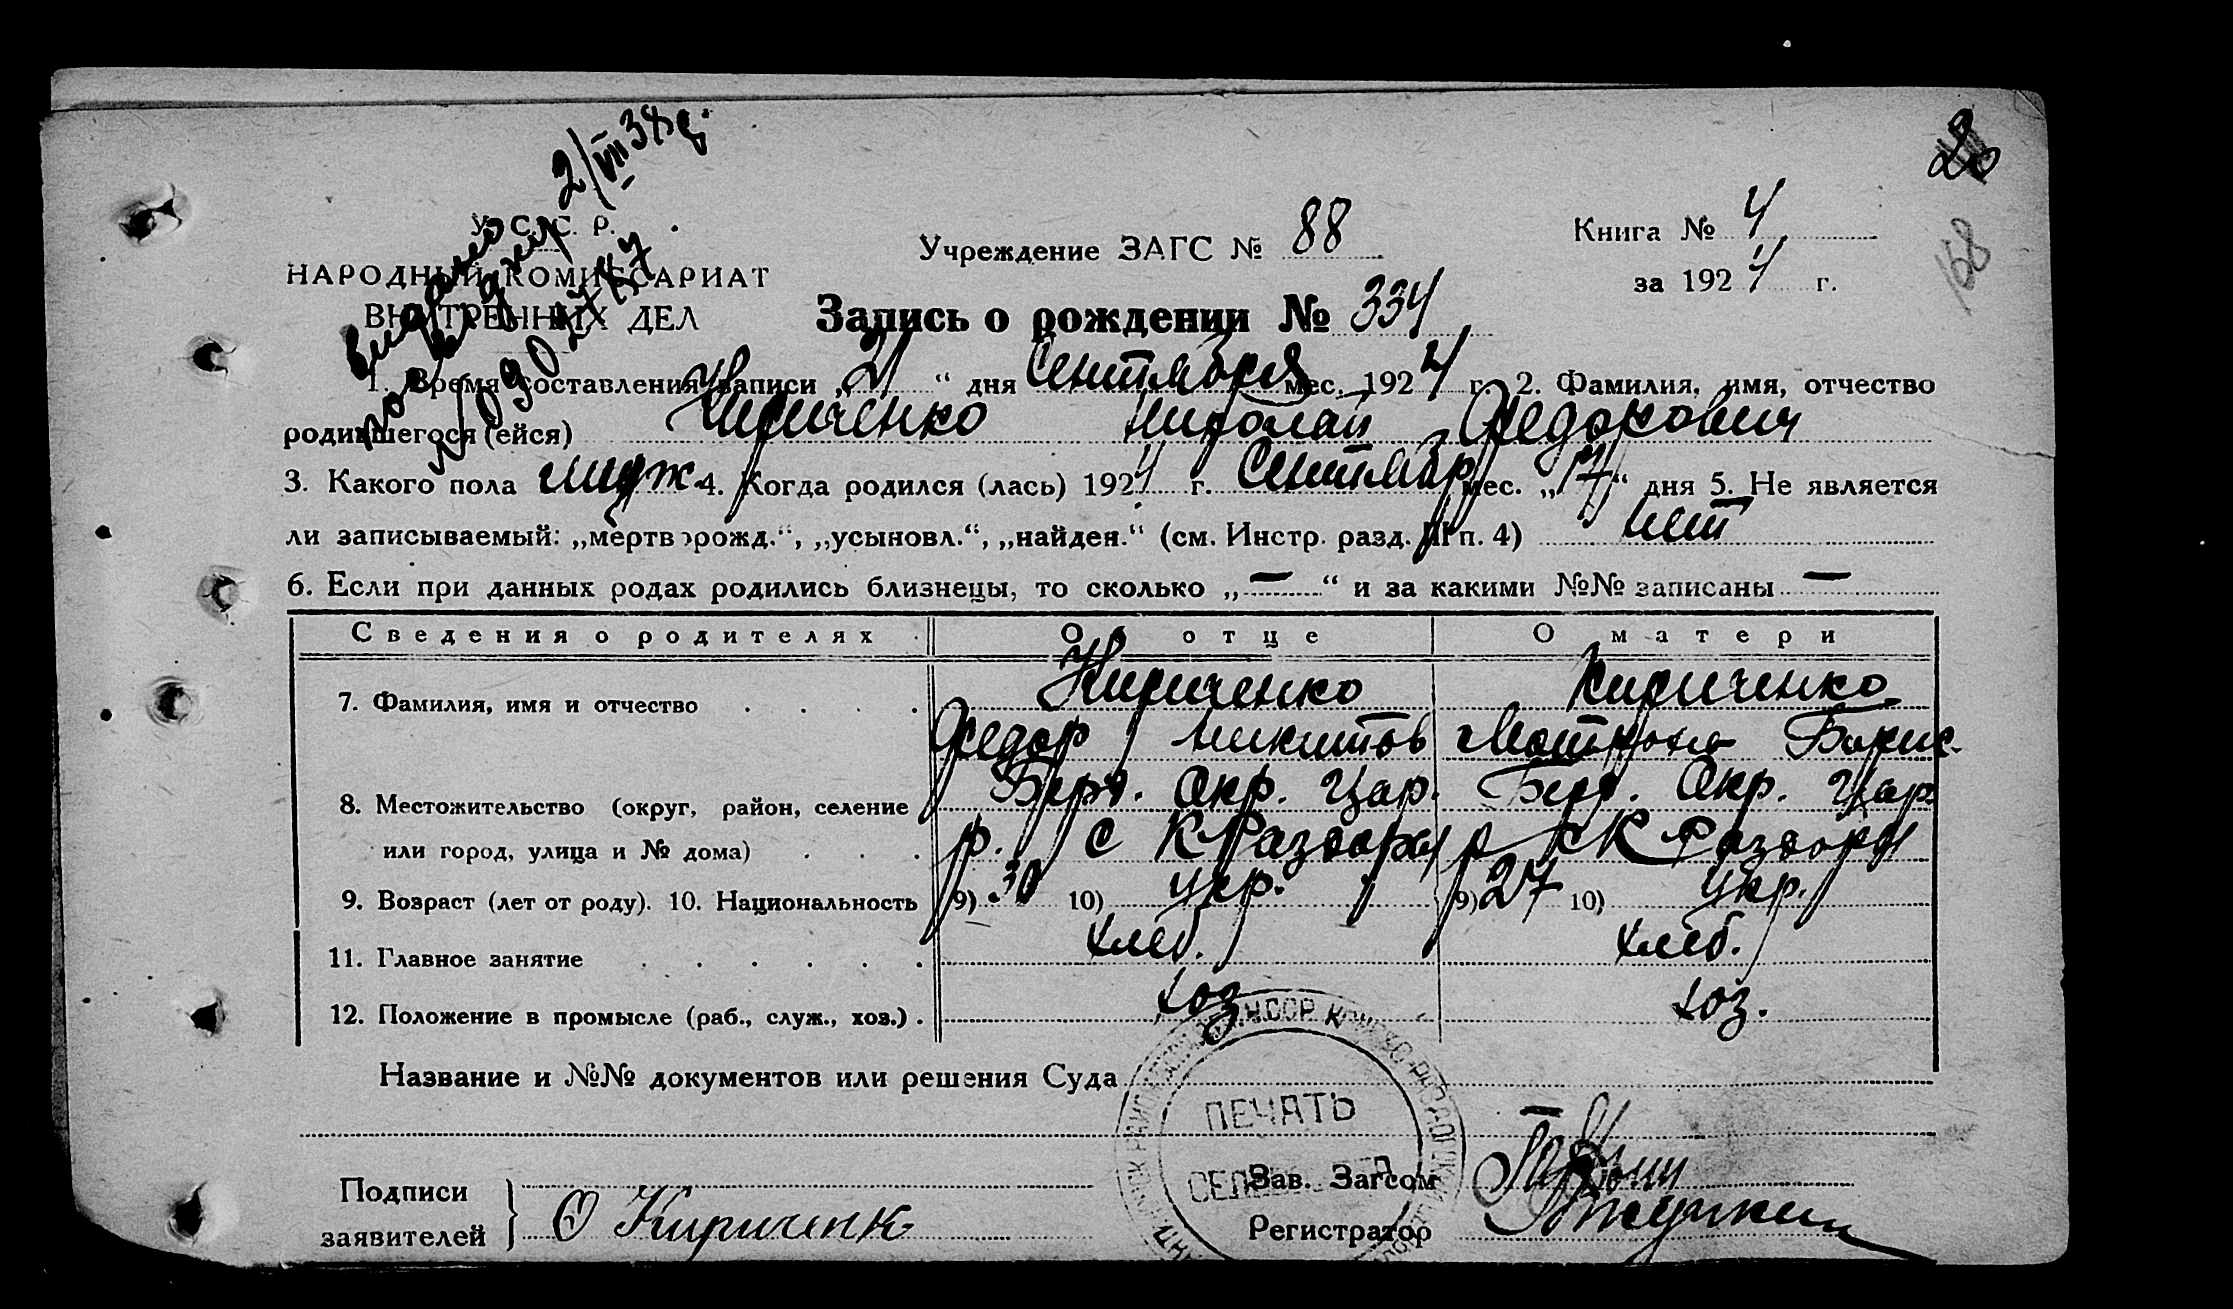 2/VII 38 р.
28
168
У. С. С. Р.
НАРОДНЫЙ КОМИССАРИАТ
ВНУТРЕННИХ ДЕЛ
Учреждение ЗАГС № 88
Книга № 4
за 1924 г.
Запись о рождении № 334
1. Время составления записи „21“ дня Сентября мес. 1924 г. 2. Фамилия, имя, отчество
родившегося (ейся) Кириченко Николай Федорович
3. Какого пола мужж 4. Когда родился (лась) 1924 г. Сентябр мес. „17“ дня 5. Не является
ли записываемый: „мертворожд.“, „усыновл.“, „найден.“ (см. Инстр. разд. III п. 4) нет
6. Если при данных родах родились близнецы, то сколько „—“ и за какими №№ записаны —
Сведения о родителях О отце О матери
7. Фамилия, имя и отчество Кириченко Кириченко
Федор Никитов Мотрона Борис.
8. Местожительство (округ, район, селение Берд. Окр. Цар. Берд. Окр. Цар.
или город, улица и № дома) р. с К Раздоры р с К Раздоры
9. Возраст (лет от роду). 10. Национальность 9) 30 10) укр. 9) 27 10) укр.
11. Главное занятие хлеб. хлеб.
12. Положение в промысле (раб., служ., хоз.) хоз хоз.
Название и №№ документов или решения Суда
ПЕЧАТЬ
Подписи
заявителей
О Кириченк
Зав. Загсом
Регистратор